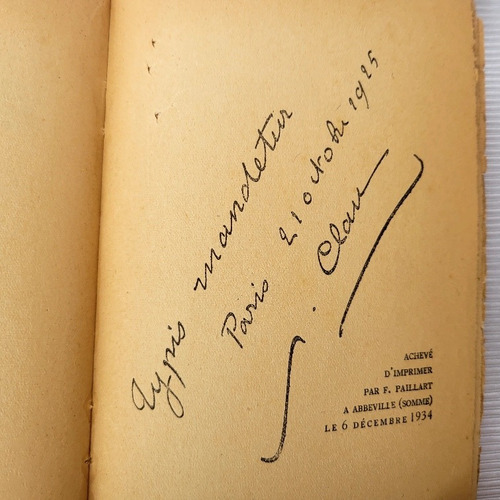 Typis mandetur
Paris 21 octobre 1925
S. Claw
ACHEVÉ
D'IMPRIMER
PAR F. PAILLART
A ABBEVILLE (SOMME)
LE 6 DÉCEMBRE 1934